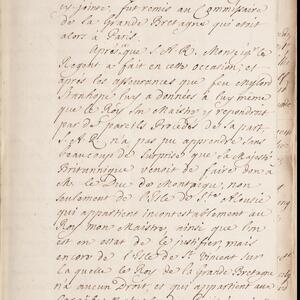 cy jointe, fut remis au Commissaire
de la Grande Bretagne qui etoit
alors à Paris.
Aprés que S. A. R. Monseigr. le
Regent a fait en cette occasion; et
aprés les assurances que feu Mylord
Stanhope luy a données à luy même
que le Roy Son Maistre y repondroit
par de pareils Procedés de sa part,
S. A. R. n'a pas pu apprendre sans
beaucoup de Surprise que Sa Majesté
Britannique venoit de faire don à
M. le Duc de Montaigu, non
seulement de l'Isle de Ste. Aloucie
qui appartient incontestablement au
Roy mon Maistre, ainsi que l'on
est en estat de le justifier, mais
encore de l'Isle de St. Vincent sur
laquelle le Roy de la grande Bretagne
n'a aucun Droit, et qui appartient aux